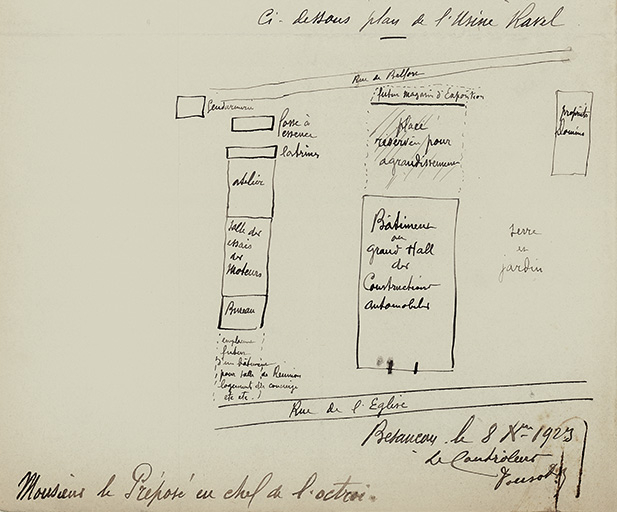 Ci-dessous plan de l'Usine Ravel
Rue de Belfort
Gendarmerie
futur magasin d'Exposition
Fosse à
essence
latrines
placé
reservée pour
agrandissement
propriété
Domaine
atelier
Salle des
essais
des
Moteurs
Bureau
Bâtiment
ou
grand Hall
des
Constructions
automobiles
terre
et
jardin
futur
d'un bâtiment
pour salle de Réunion
logement du concierge
etc etc.)
Rue de l'Eglise
Besançon le 8 Xbre 1923
Le Contrôleur
Monsieur le Préposé en chef de l'octroi.